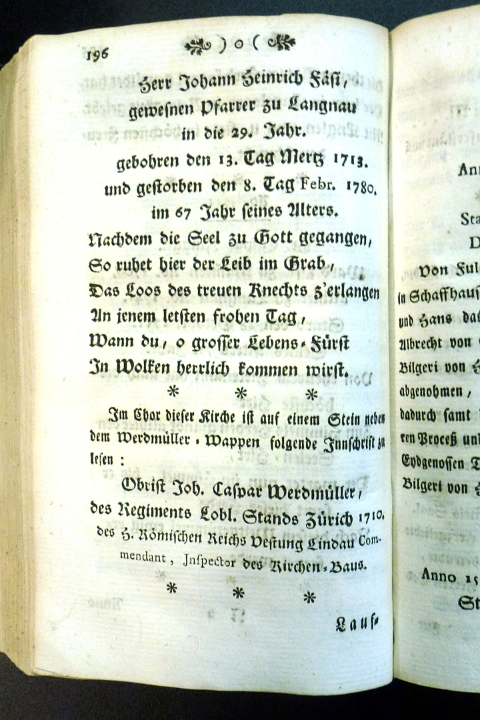 196 ) o (
Herr Johann Heinrich Fäsi,
gewesnen Pfarrer zu Langnau
in die 29. Jahr.
gebohren den 13. Tag Mertz 1713.
und gestorben den 8. Tag Febr. 1780.
im 67 Jahr seines Alters.
Nachdem die Seel zu Gott gegangen,
So ruhet hier der Leib im Grab,
Das Loos des treuen Knechts z'erlangen
An jenem letsten frohen Tag,
Wann du, o grosser Lebens-Fürst
In Wolken herrlich kommen wirst.
* * *
Im Chor dieser Kirche ist auf einem Stein neben
dem Werdmüller-Wappen folgende Innschrift zu
lesen:
Obrist Joh. Caspar Werdmüller,
des Regiments Lobl. Stands Zürich 1710.
des H. Römischen Reichs Vestung Lindau Com-
mendant, Inspector des Kirchen-Baus.
* * *
Lauf-
An
Sta
D
Von Ful
in Schaffhaus
und Hans da
Albrecht von
Bilgeri von H
abgenohmen,
dadurch samt
ren Proceß un
Eydgenossen T
Bilgeri von H
Anno 15
St